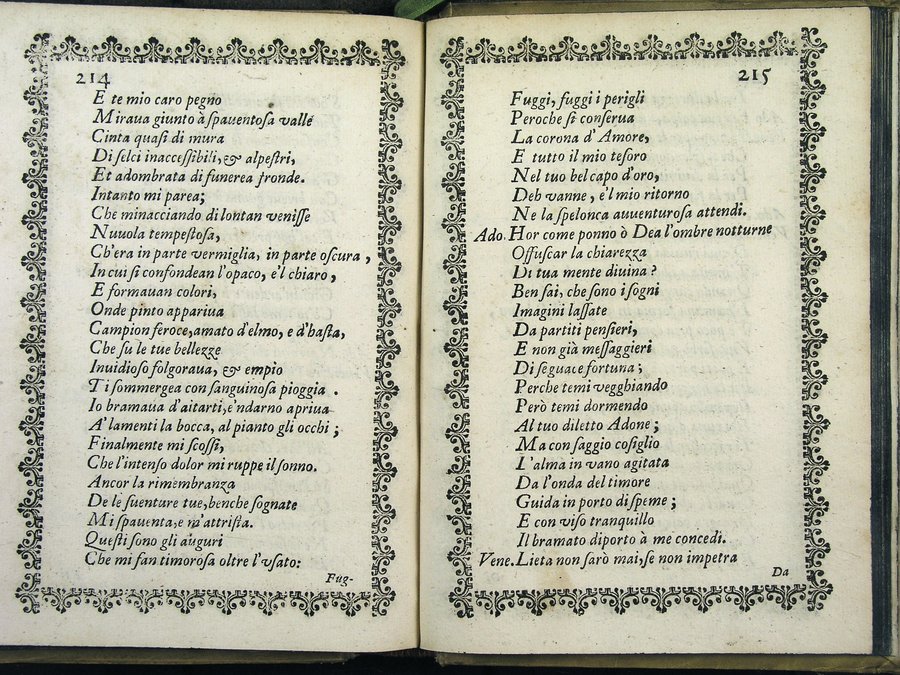 214
E te mio caro pegno
Miraua giunto à spauentosa valle
Cinta quasi di mura
Di selci inaccessibili, & alpestri,
Et adombrata di funerea fronde.
Intanto mi parea;
Che minacciando di lontan venisse
Nuuola tempestosa,
Ch'era in parte vermiglia, in parte oscura,
In cui si confondean l'opaco, e'l chiaro,
E formauan colori,
Onde pinto appariua
Campion feroce, amato d'elmo, e d'hasta,
Che su le tue bellezze
Inuidioso folgoraua, & empio
Ti sommergea con sanguinosa pioggia.
Io bramaua d'aitarti, e'ndarno apriua
A' lamenti la bocca, al pianto gli occhi;
Finalmente mi scossi,
Che l'intenso dolor mi ruppe il sonno.
Ancor la rimembranza
De le suenture tue, benche sognate
Mi spauenta, e m'attrista.
Questi sono gli auguri
Che mi fan timorosa oltre l'vsato:
Fug-
215
Fuggi, fuggi i perigli
Peroche si conserua
La corona d'Amore,
E tutto il mio tesoro
Nel tuo bel capo d'oro,
Deh vanne, e'l mio ritorno
Ne la spelonca auuenturosa attendi.
Ado. Hor come ponno ò Dea l'ombre notturne
Offuscar la chiarezza
Di tua mente diuina?
Ben sai, che sono i sogni
Imagini lassate
Da partiti pensieri,
E non già messaggieri
Di seguace fortuna;
Perche temi vegghiando
Però temi dormendo
Al tuo diletto Adone;
Ma con saggio cosiglio
L'alma in vano agitata
Da l'onda del timore
Guida in porto di speme;
E con viso tranquillo
Il bramato diporto à me concedi.
Vene. Lieta non sarò mai, se non impetra
Da